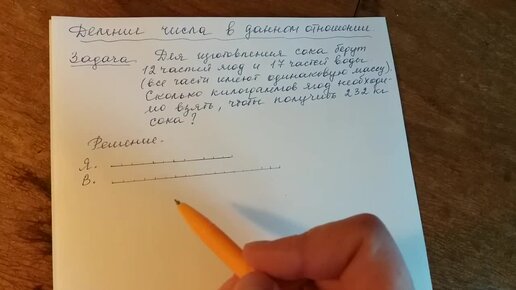 Деление числа в данном отношении.
Задача. Для изготовления сока берут
12 частей ягод и 17 частей воды
(все части имеют одинаковую массу).
Сколько килограммов ягод необходи-
мо взять, чтобы получить 232 кг
сока?
Решение.
Я.
В.